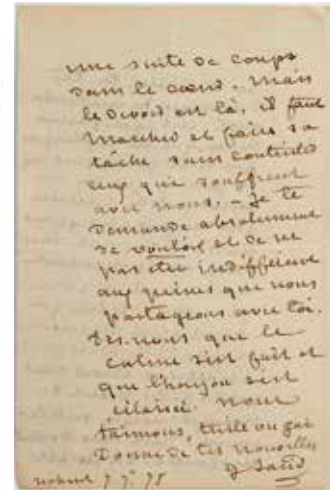 une suite de coups
dans le cœur. Mais
le devoir est là, il faut
marcher et faire sa
tâche sans contrister
ceux qui souffrent
avec nous. – Je te
demande absolument
de vouloir et de ne
pas être indifférent
aux peines que nous
partageons avec toi.
Dis-nous que le
calme s'est fait et
que l'horizon s'est
éclairci. Nous
t'aimons, triste ou gai
Donne de tes nouvelles
G Sand
Nohant 7 7